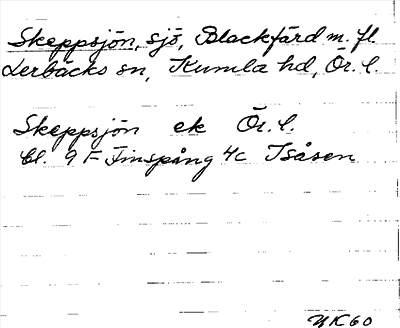 Skeppsjön, sjö, Blackfärd m. fl.
Lerbäcks sn, Kumla hd, Ör. l.
Skeppsjön ek Ör. l.
bl. 9 F Finspång 4c Isåsen
NK60